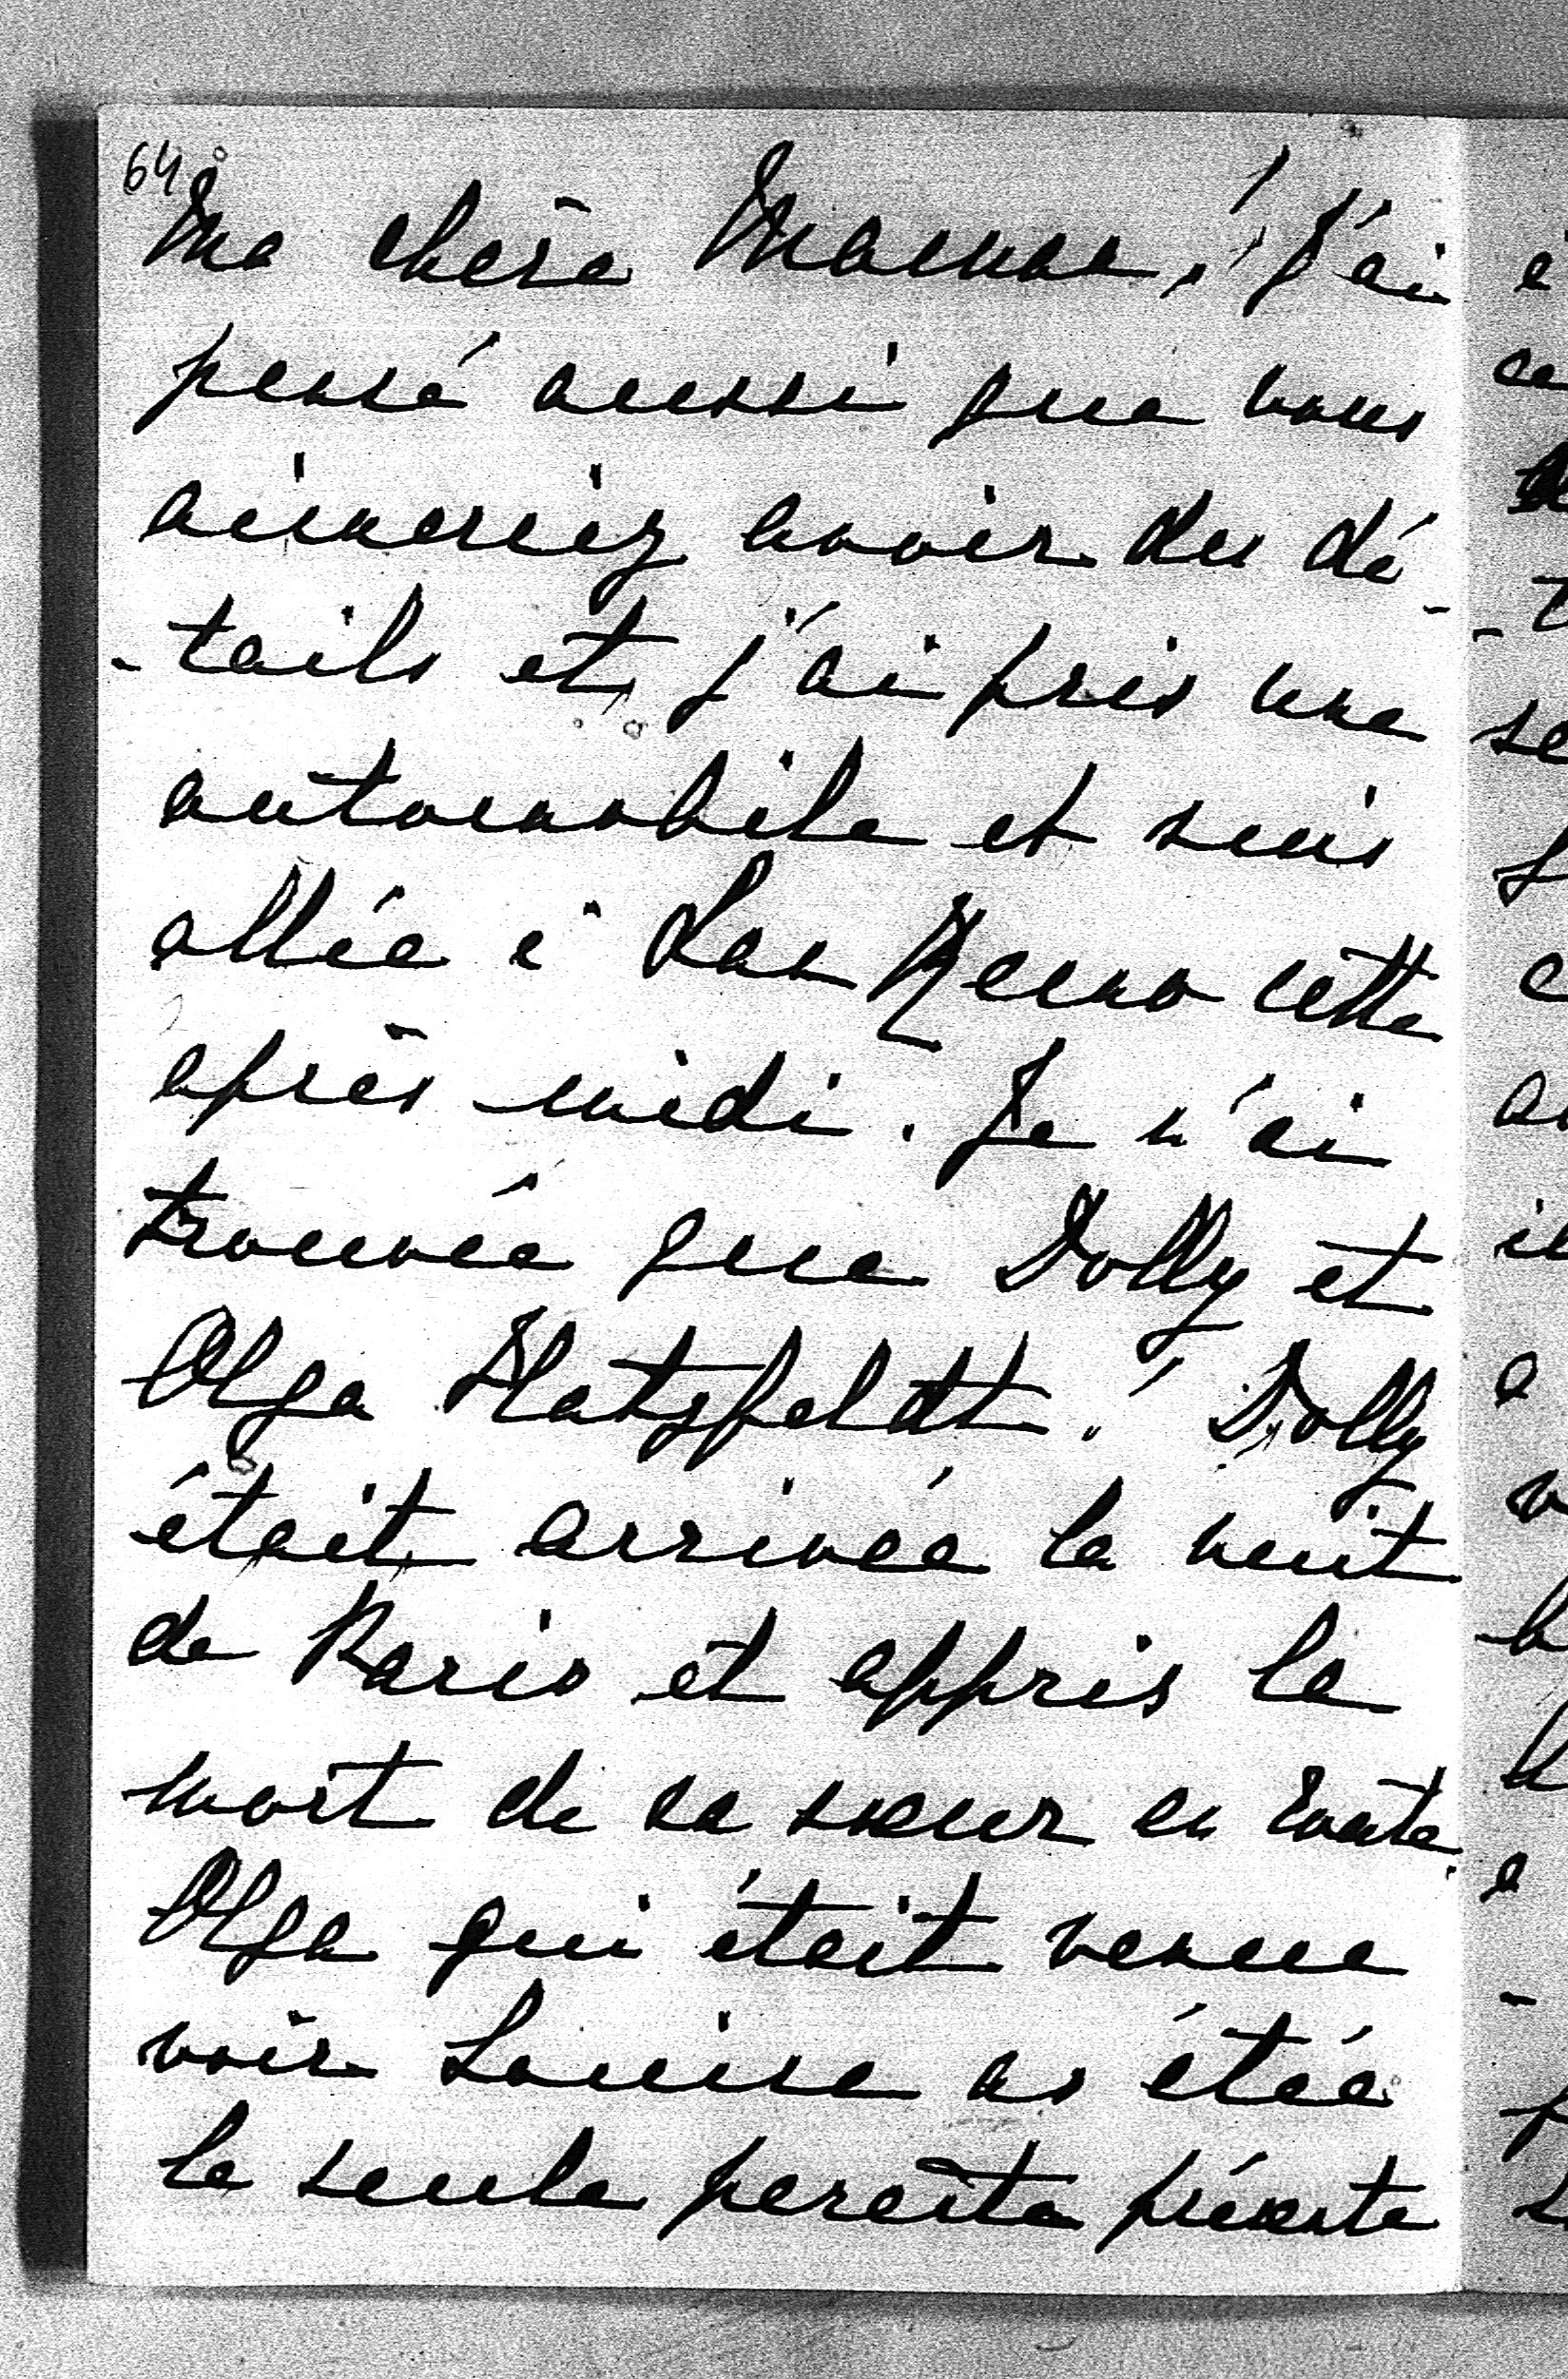 64
Ma chère Maman, ! J'ai
pensé aussi que vous
aimeriez avoir des dé-
-tails et j'ai pris une
automobile et suis
allée à San Remo cette
après-midi. Je n'ai
trouvée que Dolly et
Olga Hatzfeldt ! Dolly
était arrivée la nuit
de Paris et appris la
mort de sa sœur en route.
Olga qui était venue
voir Louise as étée
la seule parente présente